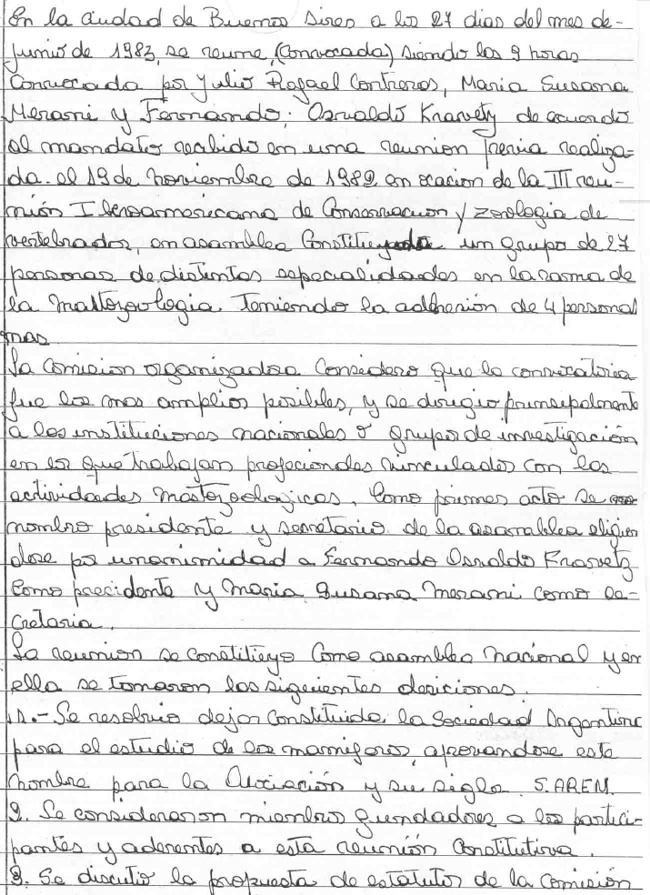 En la ciudad de Buenos Aires a los 27 dias del mes de-
junio de 1983, se reune, (convocada) siendo las 9 horas
Convocada por Julio Rafael Contreras, Maria Susana
Merani y Fernando, Osvaldo Kravetz de acuerdo
al mandato recibido en una reunion previa realiza-
da. el 19 de noviembre de 1982 en ocacion de la III reu-
nión Iberoamericana de Conservacion y zoologia de
vertebrados, en asamblea Constituyente un grupo de 27
personas de distintas especialidades en la rama de
la Mastozoologia. Teniendo la adhesión de 4 personas
mas
La Comision organizadora Considero que la convocatoria
fue los mas amplios posibles, y se dirigio principalmente
a las instituciones nacionales o grupos de investigación
en los que trabajan profecionales vinculados con las
actividades mastozoologicas. Como primer acto se
nombro presidente y secretario de la asamblea eligien
dose por unanimidad a Fernando Osvaldo Kravetz
Como precidente y Maria Susana Merani como se-
cretaria.
La reunion se constituyo Como asamblea nacional y en
ella se tomaron las siguientes desiciones.
1.- Se resolvio dejar Constituida la Sociedad Argentina
para el estudio de los mamiferos, aprovandose este
nombre para la Asociación y su sigla S.AREM.
2. Se consideraron miembros fundadores a los partici-
pantes y aderentes a esta reunión Constitutiva.
3. Se discutio la propuesta de estatutos de la Comisión